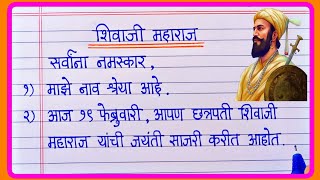 शिवाजी महाराज
सर्वांना नमस्कार,
१) माझे नाव श्रेया आहे.
२) आज १९ फेब्रुवारी, आपण छत्रपती शिवाजी
महाराज यांची जयंती साजरी करीत आहोत.